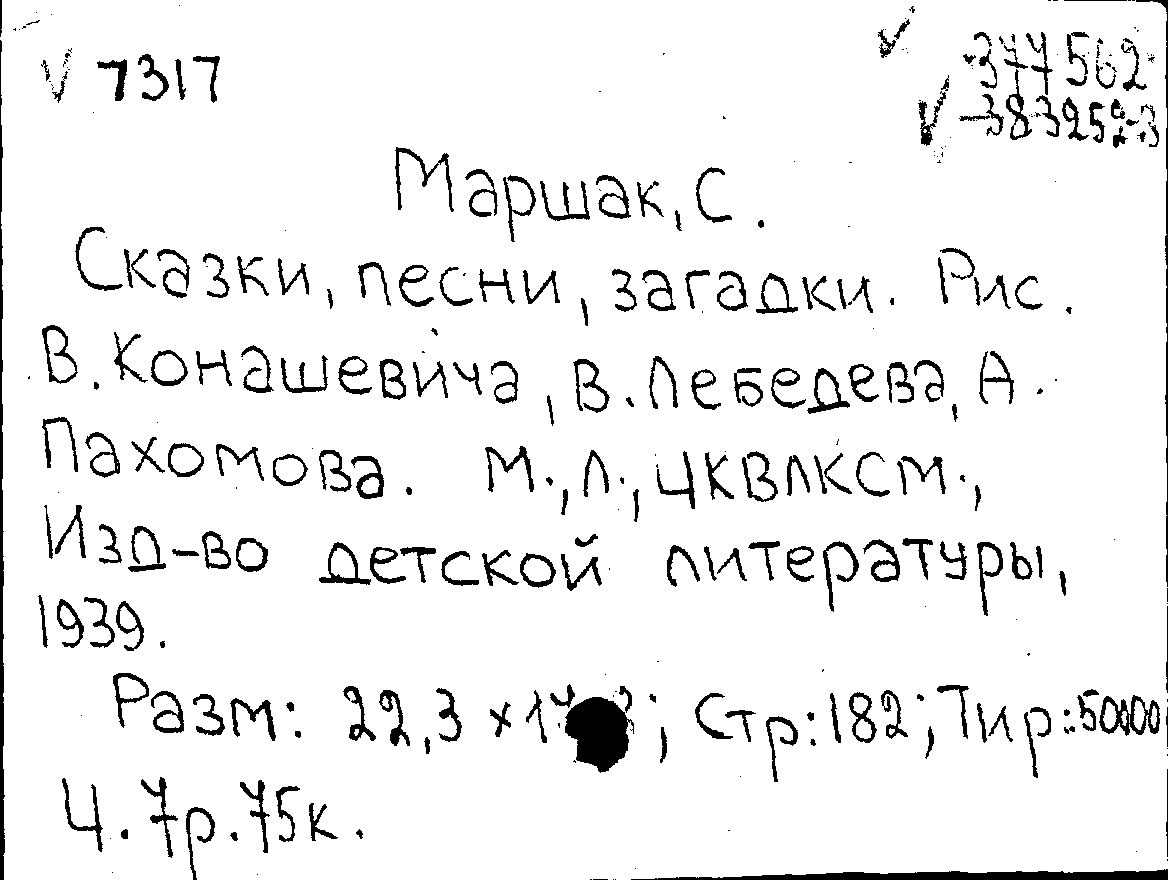 V 7317
✓ 377562
✓ -383252-3
Маршак, С.
Сказки, песни, загадки. Рис.
В. Конашевича, В. Лебедева, А.
Пахомова. М., Л., ЦКВЛКСМ.,
Изд-во детской литературы,
1939.
Разм: 22,3 × ; Стр: 182; Тир: 50000
Ц. 7р. 75к.